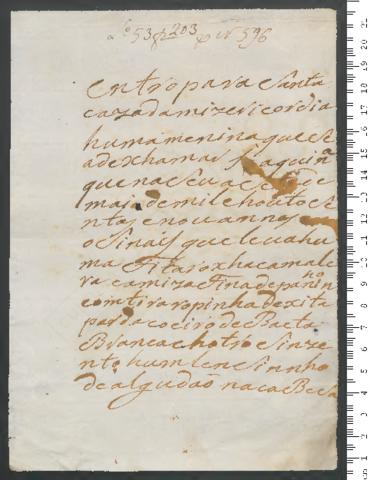 53 203 nº 596
Entro para a Santa
caza da mizericordia
huma menina que
que naseu a
mais de mil e houtose
ntas e nou annos
os Sinais que leva hu
ma Fita roxha camale
va camiza Fina de panin
com tira ropinha de xita
parda coeiro de Baeta
Branca e hotro sinze
nto hum lensinnho
de algudaõ na ca Besa